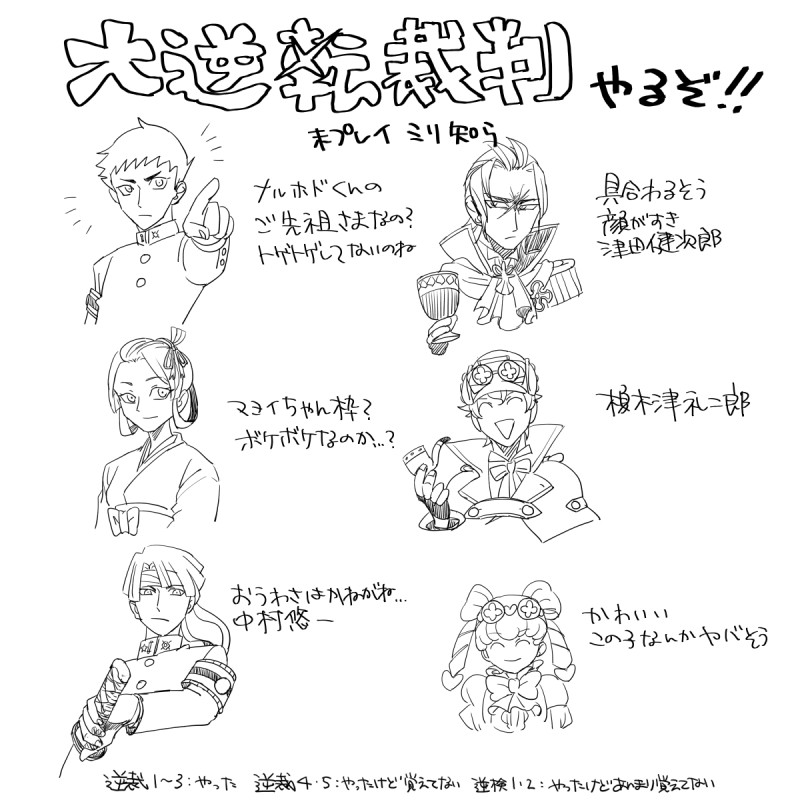 大逆転裁判 やるぞ!!
未プレイ ミリ知ら
ナルホドくんの
ご先祖さまなの?
トゲトゲしてないのね
具合わるそう
顔がすき
津田健次郎
マヨイちゃん枠?
ボケボケなのか…?
榎木津礼二郎
おうわさはかねがね…
中村悠一
かわいい
この子なんかヤバそう
逆裁1〜3:やった 逆裁4・5:やったけど覚えてない 逆検1・2:やったけどあんまり覚えてない